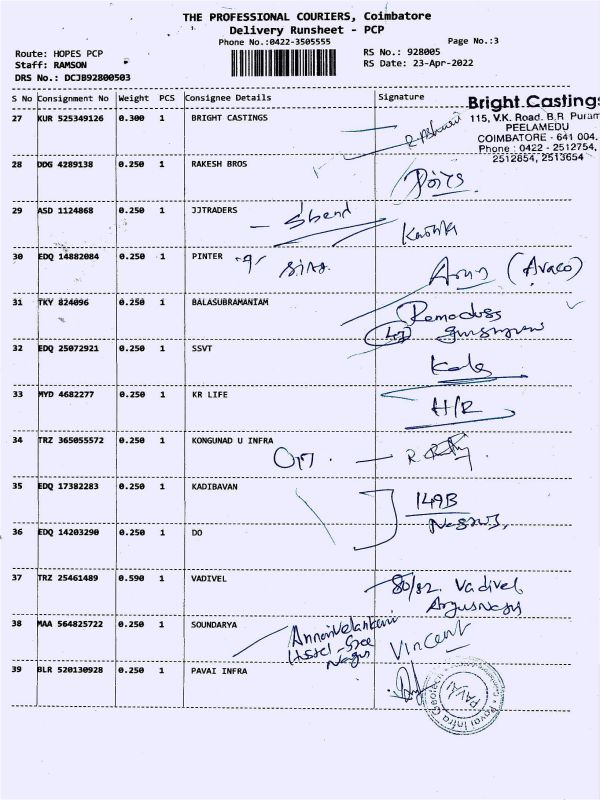 THE PROFESSIONAL COURIERS, Coimbatore
Delivery Runsheet - PCP
Phone No.:0422-3505555 Page No.:3
Route: HOPES PCP RS No.: 928005
Staff: RAMSON RS Date: 23-Apr-2022
DRS No.: DCJB92800503
S No Consignment No Weight PCS Consignee Details Signature
Bright Castings
115, V.K. Road, B.R. Puram
PEELAMEDU
COIMBATORE - 641 004.
Phone : 0422 - 2512754,
2512854, 2513654
27 KUR 525349126 0.300 1 BRIGHT CASTINGS
28 DDG 4289138 0.250 1 RAKESH BROS
29 ASD 1124868 0.250 1 JJTRADERS
30 EDQ 14882084 0.250 1 PINTER Arun (Avaco)
31 TKY 824096 0.250 1 BALASUBRAMANIAM
32 EDQ 25072921 0.250 1 SSVT
33 MYD 4682277 0.250 1 KR LIFE H/R
34 TRZ 365055572 0.250 1 KONGUNAD U INFRA
35 EDQ 17382283 0.250 1 KADIBAVAN 149B
36 EDQ 14203290 0.250 1 DO
37 TRZ 25461489 0.590 1 VADIVEL 80/82. Vadivel
38 MAA 564825722 0.250 1 SOUNDARYA Vincent
39 BLR 520130928 0.250 1 PAVAI INFRA
PAVAI